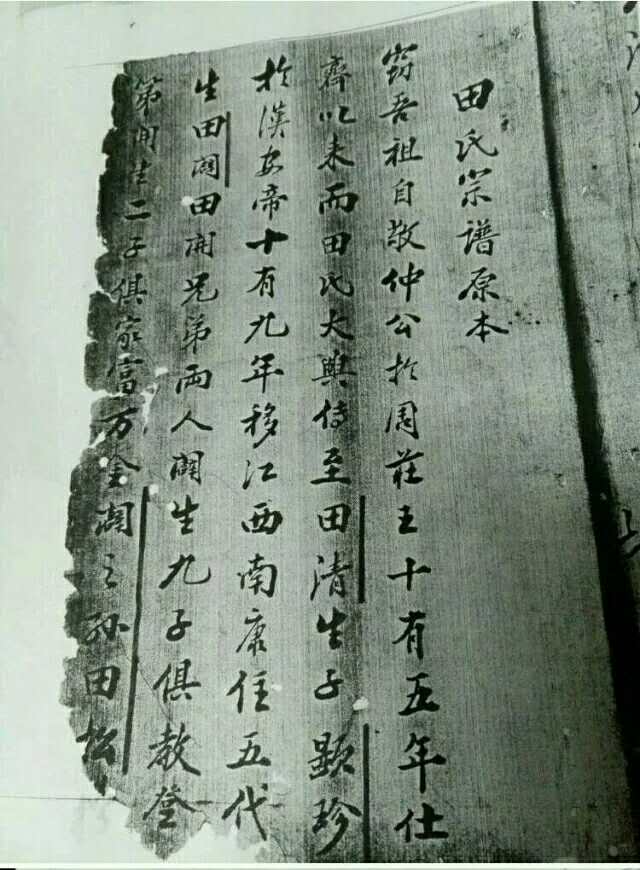 田氏宗譜原本
窃吾祖自敬仲公扵周莊王十有五年仕
齊以来而田氏大興传至田清生子顕珍
扵漢安帝十有九年移江西南康住五代
生田闊田開兄弟両人闊生九子俱教登
第開生二子俱家富万金闊之孙田松